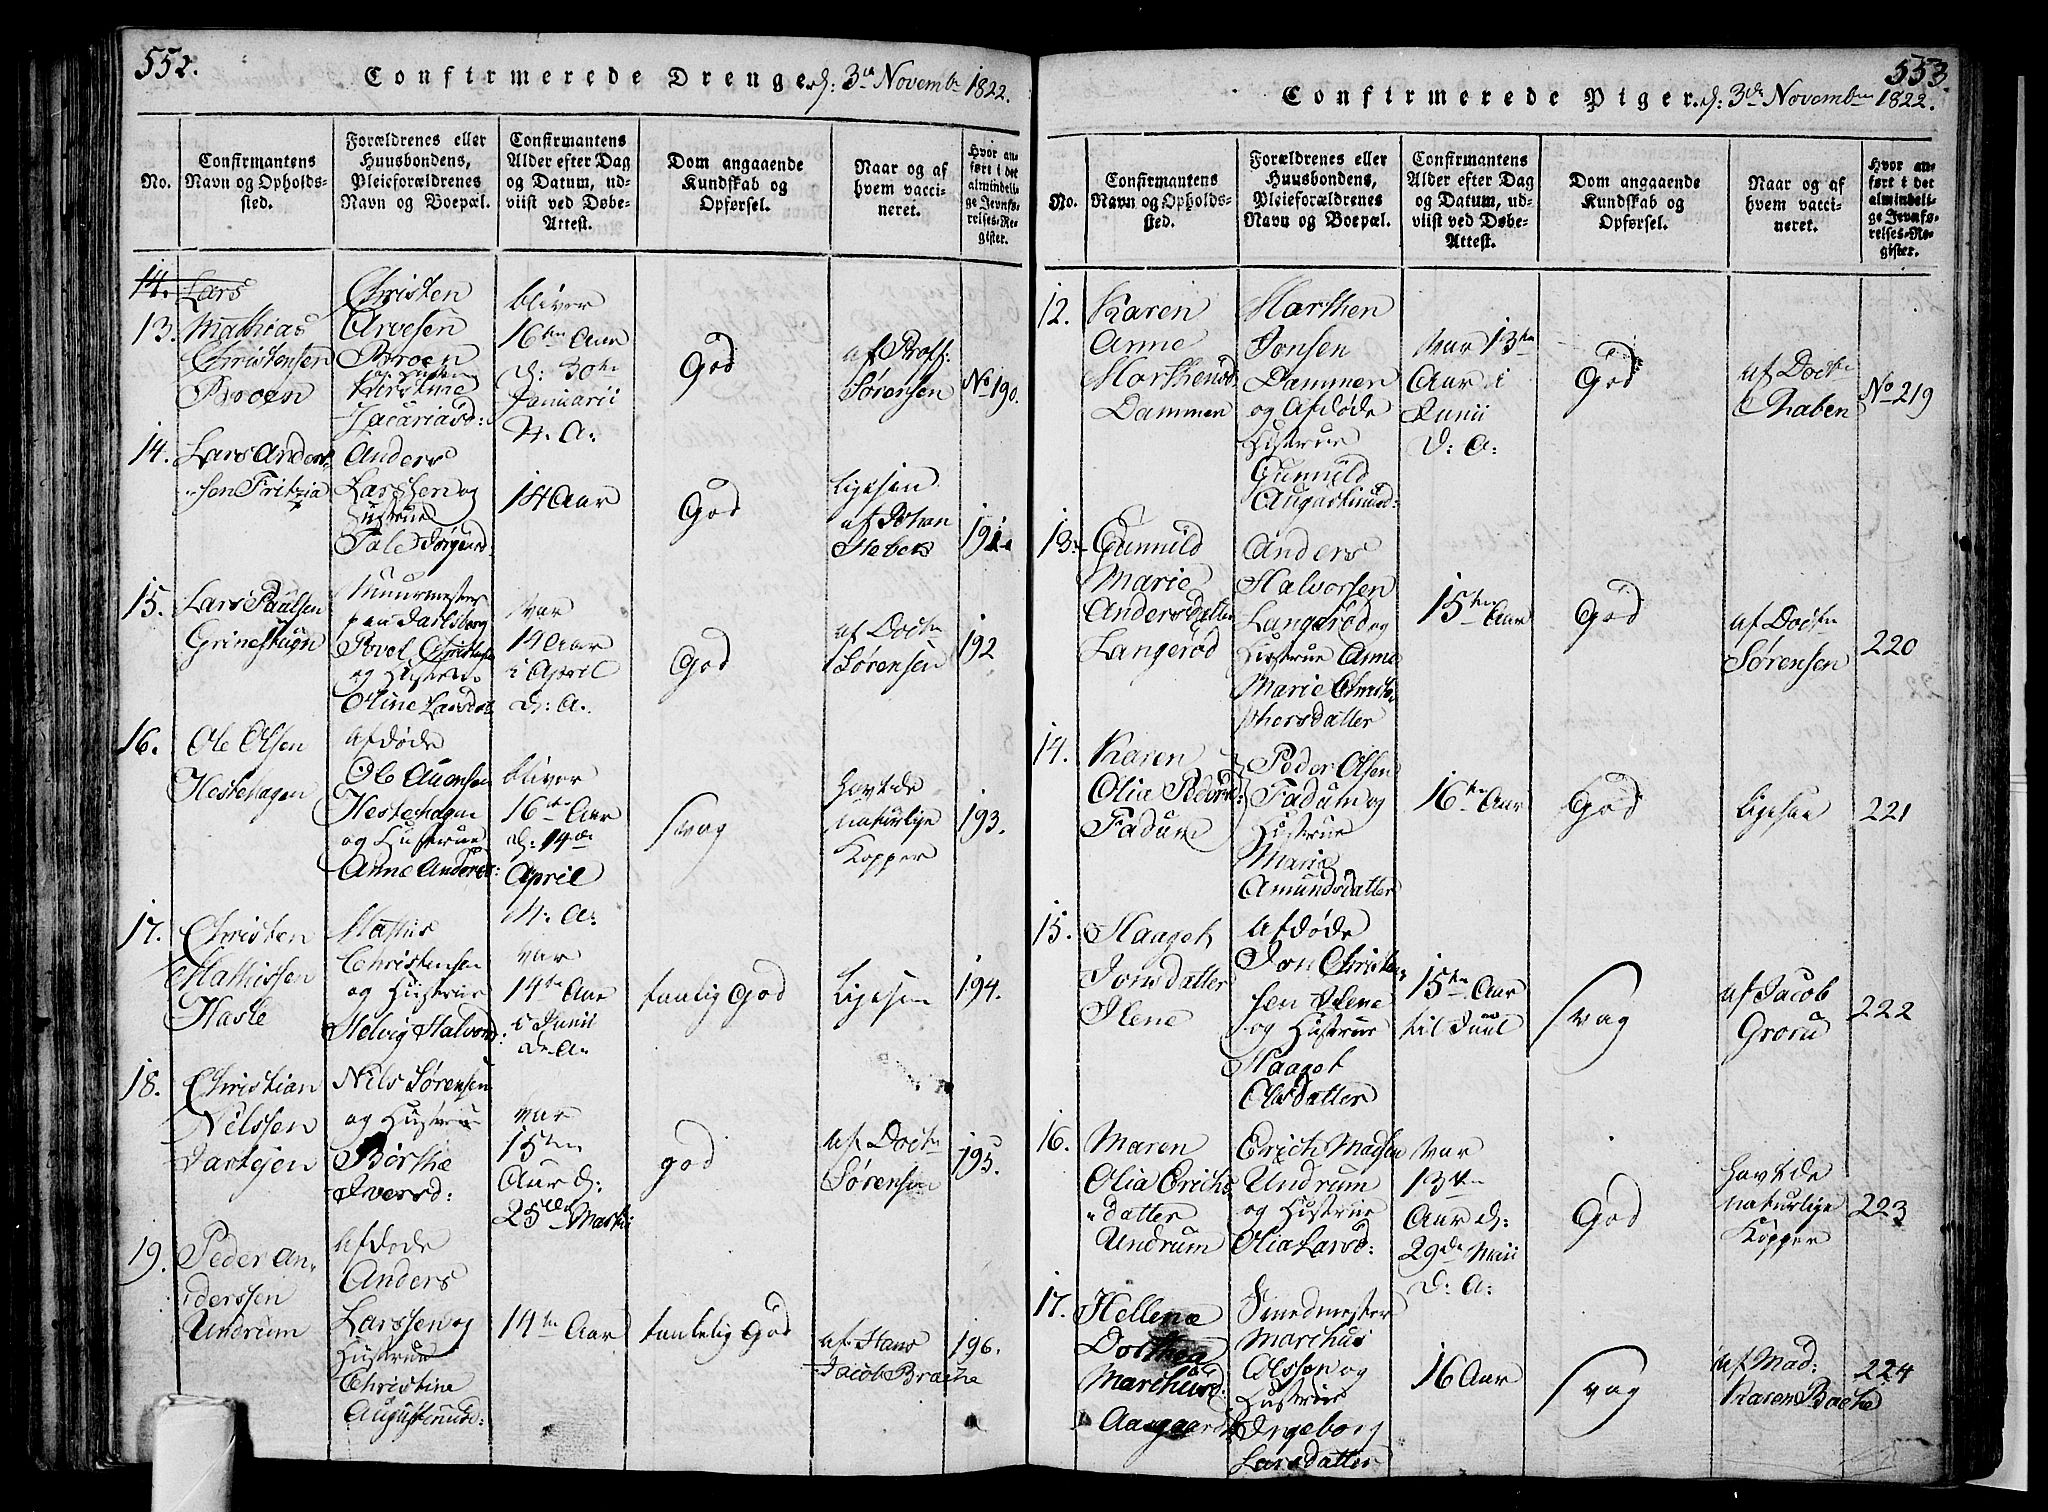 552.
Confirmerede Drenge. d: 3die Novembr 1822.
No.
Confirmantens
Navn og Opholds-
sted.
Forældrenes eller
Huusbondens,
Pleieforældrenes
Navn og Boepæl.
Confirmantens
Alder efter Dag
og Datum, ud-
viist ved Døbe-
Attest.
Dom angaaende
Kundskab og
Opførsel.
Naar og af
hvem vacci-
neret.
Hvor an-
ført i det
almindeli-
ge Jevnfø-
relses-Re-
gister.
14. Lars
13.
Mathias
Christensen
Broen
Christen
Arvesen
Broen
og Hustru
Kirstine
Zacariasd:
bliver
16ten Aar
d: 30te
Januarii
N: A:
God
af Proff:
Sørensen
No 190.
14.
Lars Anders
sen Fritzia
Anders
Larssen og
Hustrue
Tale Jørgensd.
14 Aar
God
ligesen
af Johan
Hebers
191.
15.
Lars Paulsen
Grinestuen
Muurmester
paa Jarlsberg
Povel Christens
og Hustrue
Oline Larsdat
var
14 Aar
i April
d: A.
God
af Doctr
Sørensen
192
16.
Ole Olsen
Hestehagen
Afdøde
Ole Auensen
Hestehagen
og Hustrue
Anne Andersd:
bliver
16te Aar
d: 14de
April
N: A:
svag
havt de
naturlige
Kopper
193.
17.
Christen
Mathissen
Hasle
Mathis
Christensen
og Hustrue
Helvig Halvorsd:
var
14te Aar
i Junii
d: A:
taalig God
ligesen
194.
18.
Christian
Nilssen
Jarlejen
Nils Sørensen
og Hustrue
Børthe
Iversd:
var
15ten
Aar d:
25de Martii
god
af Doctr
Sørensen
195.
19.
Peder An-
derssen
Undrum
Afdøde
Anders
Larssen og
Hustrue
Christine
Augustinusd:
14te Aar
taalelig God
af Hans
Jacob Brache
196.
553.
Confirmerede Piger. d: 3de Novembr 1822.
No.
Confirmantens
Navn og Opholds-
sted.
Forældrenes eller
Huusbondens,
Pleieforældrenes
Navn og Boepæl.
Confirmantens
Alder efter Dag
og Datum, ud-
viist ved Døbe-
Attest.
Dom angaaende
Kundskab og
Opførsel.
Naar og af
hvem vacci-
neret.
Hvor an-
ført i det
almindeli-
ge Jevnfø-
relses-Re-
gister.
12.
Karen
Anne
Marthensd.
Dammen
Marthen
Jonsen
Dammen
og Afdøde
Hustrue
Gunnild
Augustinusd:
var 13ten
Aar i
Junii
d: A:
God
af Doctr
Chaben
No 219
13.
Gunnild
Marie
Andersdatter
Langerød
Anders
Halvorsen
Langerød og
Hustrue Anne
Marie
shersdatter
15ten Aar
God
af Doctr
Sørensen
220
14.
Karen
Olia Pedersd:
Fadum
Peder Olsen
Fadum og
Hustrue
Marie
Amundsdatter
16te Aar
God
ligesaa
221
15.
Haaget
Jonsdatter
Ilene
Afdøde
Jon Christen-
sen Ilene
og Hustrue
Haaget
Olsdatter
15ten Aar
til Juul
svag
af Jacob
Grorud
222
16.
Maren
Olia Erichs
datter
Undrum
Erich Madsen
Undrum
og Hustrue
Olia Larsd:
var
13ten
Aar d:
29de Maii
d: A:
God
havt de
naturlige
Kopper
223
17.
Hellena
Dorthea
Marchusd:
Aaegaard
Smedmester
Marchus
Olsson og
Hustrue
Ingeborg
Larsdatter
16 Aar
svag
af Mad:
Karen Bache
224